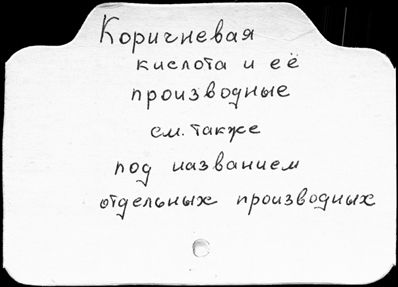 Коричневая
кислота и её
производные
см. также
под названием
отдельных производных